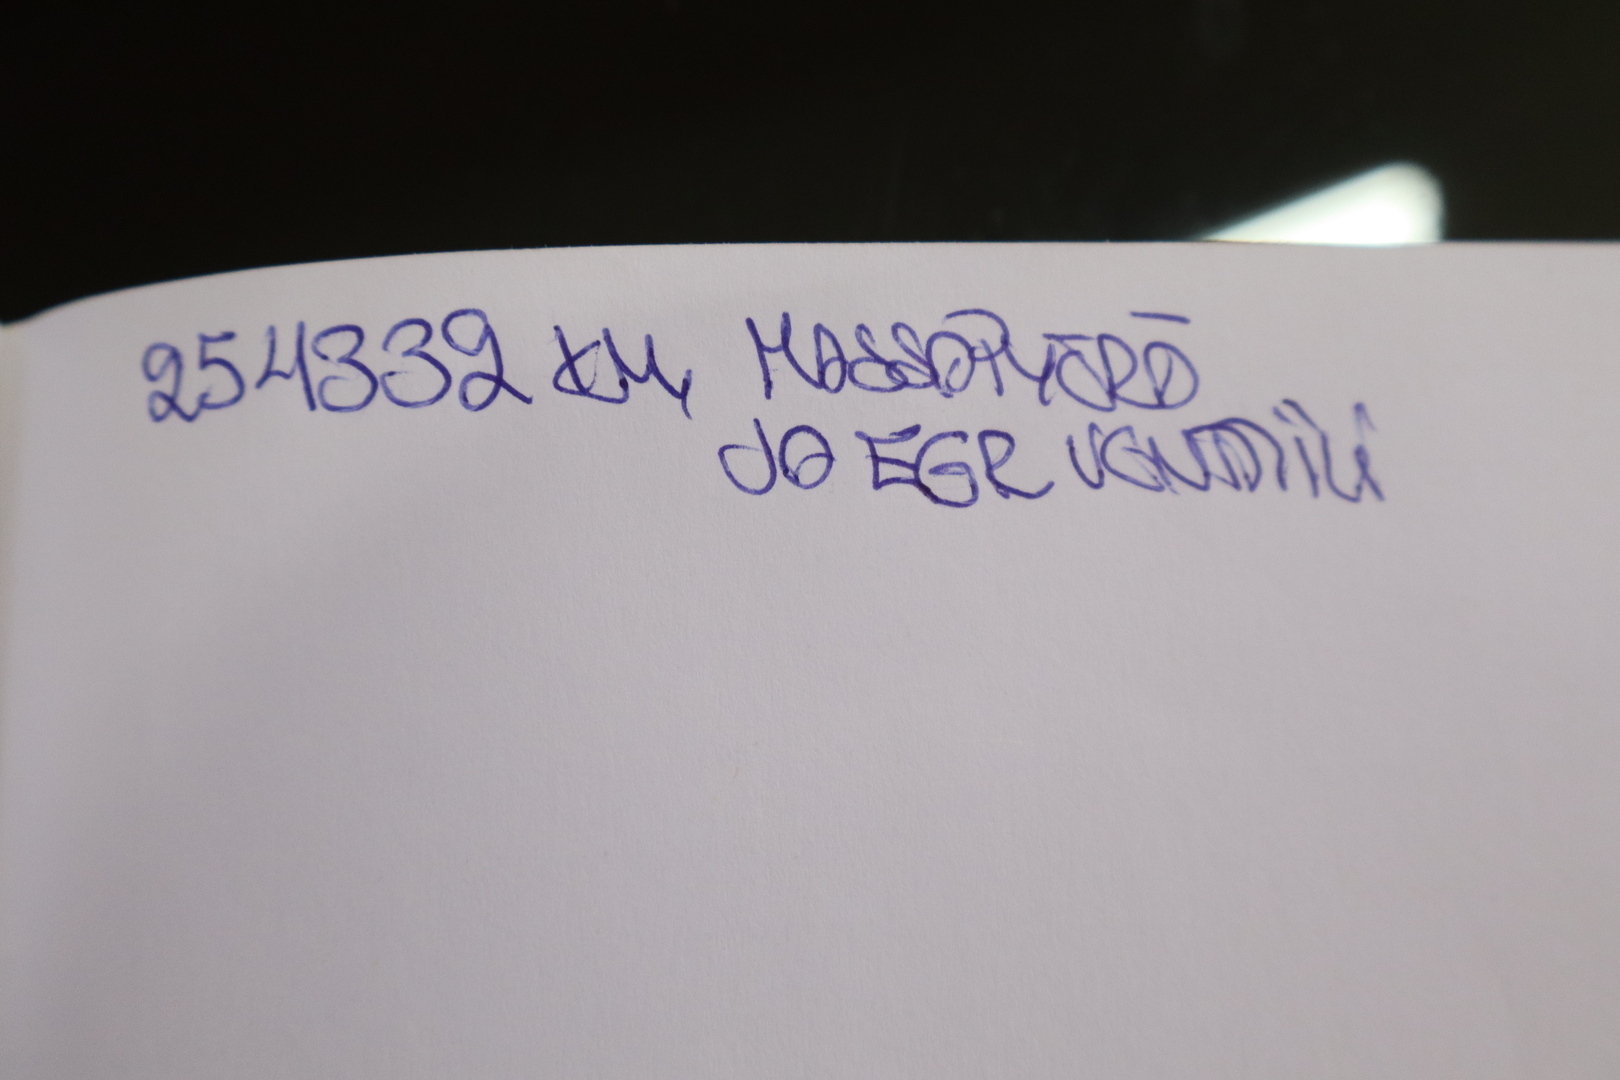 254332 KM, MASSAMÉRŐ
JO EGR VENTIL